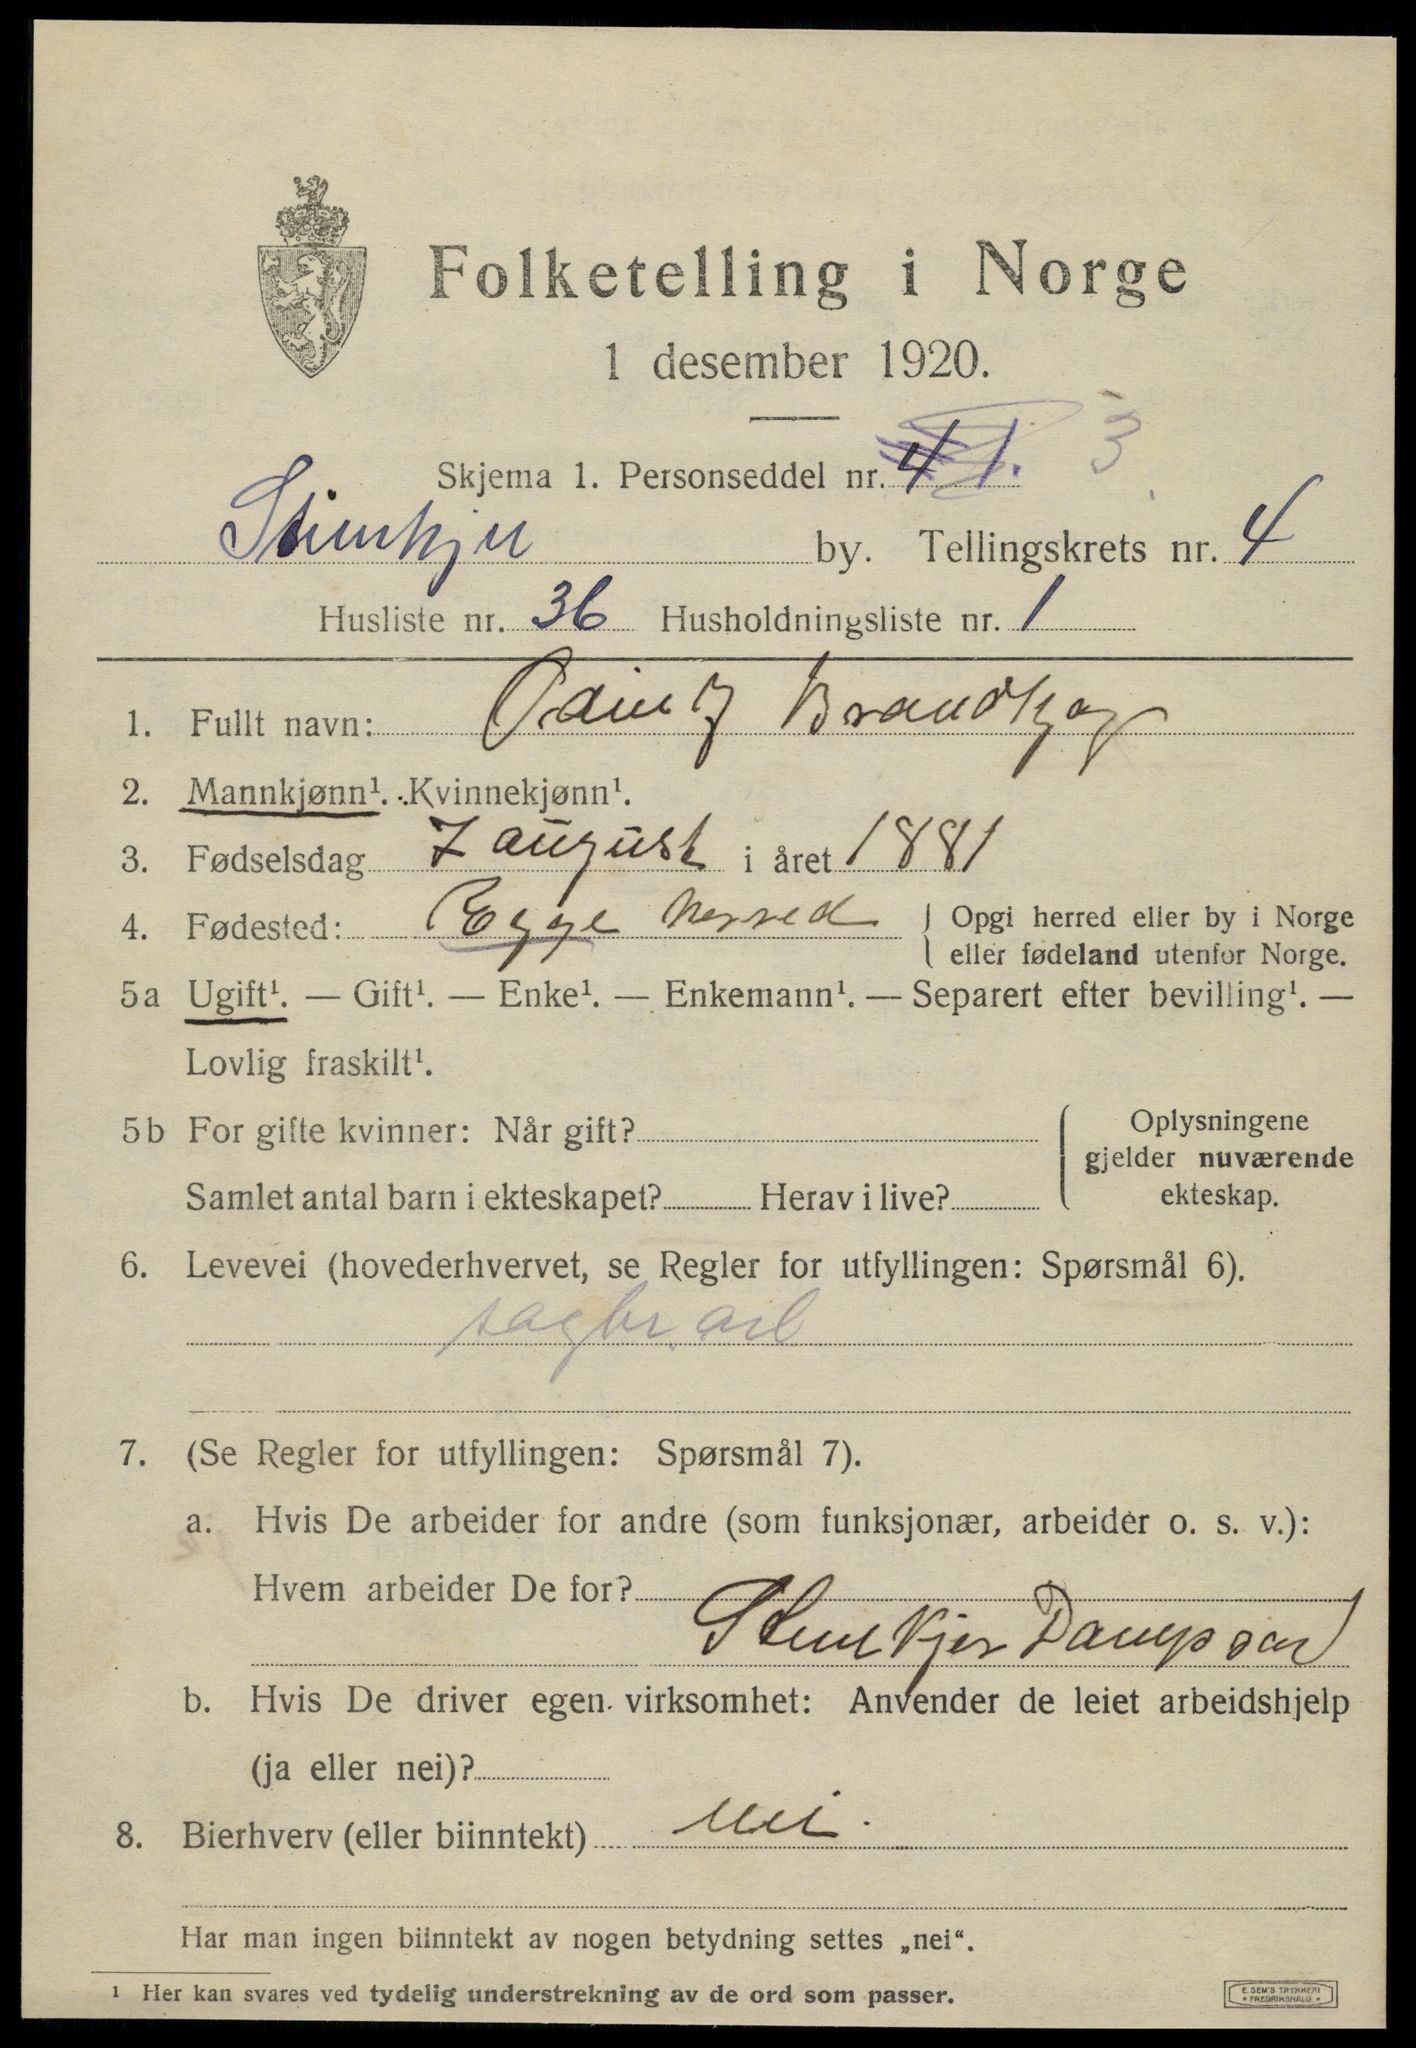 Folketelling i Norge
1 desember 1920.
Skjema 1. Personseddel nr. 4 1. 3
Stenkjer by. Tellingskrets nr. 4
Husliste nr. 36 Husholdningsliste nr. 1
1. Fullt navn: Odin
2. Mannkjønn¹. Kvinnekjønn¹.
3. Fødselsdag 7 august i året 1881
4. Fødested: Egge herred { Opgi herred eller by i Norge
eller fødeland utenfor Norge.
5a Ugift¹. — Gift¹. — Enke¹. — Enkemann¹. — Separert efter bevilling¹. —
Lovlig fraskilt¹.
5b For gifte kvinner: Når gift?
Samlet antal barn i ekteskapet? Herav i live?
Oplysningene
gjelder nuværende
ekteskap.
6. Levevei (hovederhvervet, se Regler for utfyllingen: Spørsmål 6).
sagbr. arb
7. (Se Regler for utfyllingen: Spørsmål 7).
a. Hvis De arbeider for andre (som funksjonær, arbeider o. s. v.):
Hvem arbeider De for?
Stenkjer Dampsag
b. Hvis De driver egen virksomhet: Anvender de leiet arbeidshjelp
(ja eller nei)?
8. Bierhverv (eller biinntekt) nei.
Har man ingen biinntekt av nogen betydning settes „nei“.
¹ Her kan svares ved tydelig understrekning av de ord som passer.
E. SEM'S TRYKKERI
* FREDRIKSHALD *